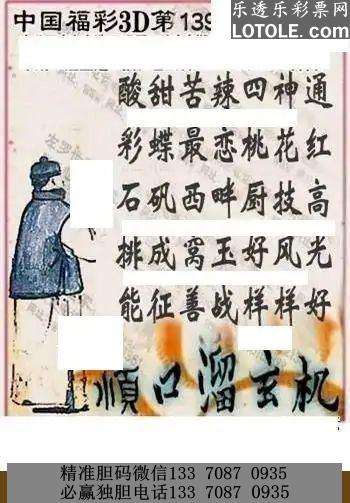 中国福彩3D第139
乐透乐彩票网
LOTOLE.COM
酸甜苦辣四神通
彩蝶最恋桃花红
石矶西畔厨技高
排成窝玉好风光
能征善战样样好
顺口溜玄机
精准胆码微信133 7087 0935
必赢独胆电话133 7087 0935